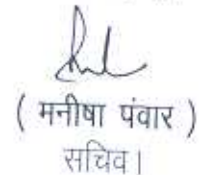 ( मनीषा पंवार )
सचिव।